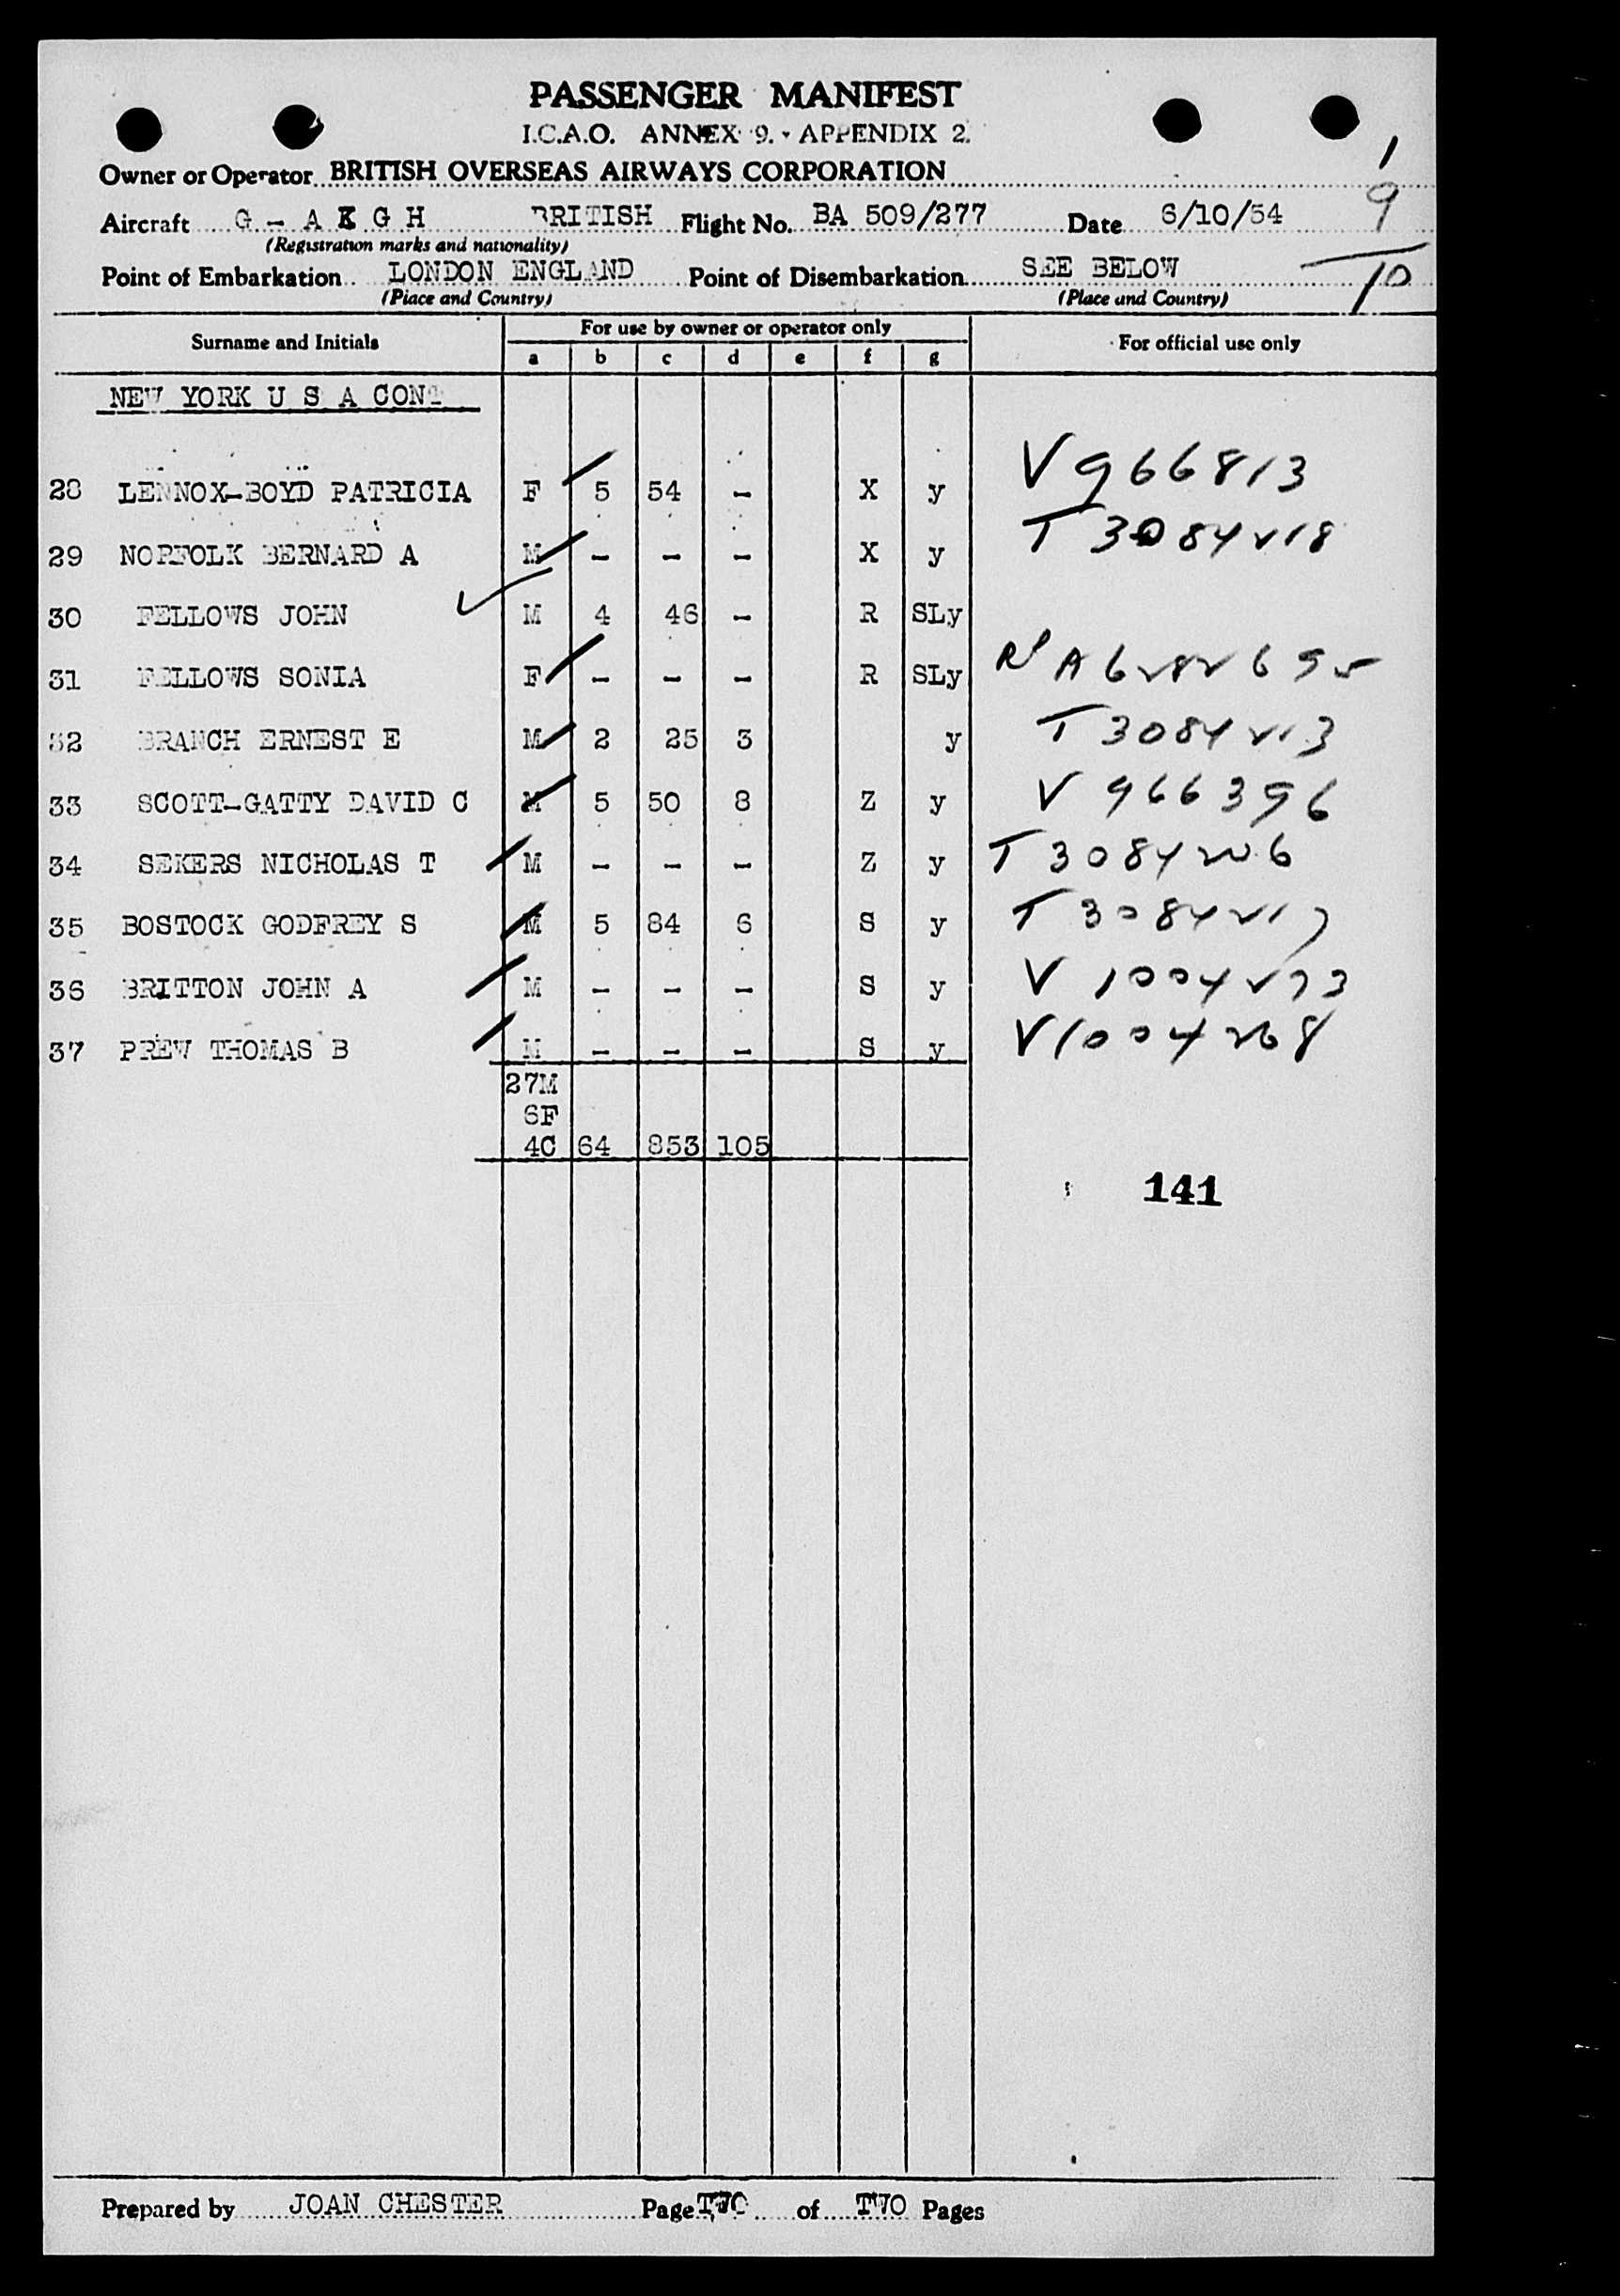 PASSENGER MANIFEST
I.C.A.O. ANNEX 9. - APPENDIX 2.
1
Owner or Operator BRITISH OVERSEAS AIRWAYS CORPORATION
9
Aircraft G - A K G H BRITISH Flight No. BA 509/277 Date 6/10/54
(Registration marks and nationality)
Point of Embarkation LONDON ENGLAND Point of Disembarkation SEE BELOW
10
(Place and Country) (Place and Country)
Surname and Initials For use by owner or operator only For official use only
a b c d e f g
NEW YORK U S A CONT
28 LENNOX-BOYD PATRICIA F 5 54 - X y V 966813
29 NORFOLK BERNARD A M - - - X y T 3084218
30 FELLOWS JOHN M 4 46 - R SLy
31 FELLOWS SONIA F - - - R SLy A 6282695
32 BRANCH ERNEST E M 2 25 3 y T 3084213
33 SCOTT-GATTY DAVID C M 5 50 8 Z y V 966396
34 SEKERS NICHOLAS T M - - - Z y T 3084226
35 BOSTOCK GODFREY S M 5 84 6 S y T 3084217
36 BRITTON JOHN A M - - - S y V 1004273
37 PREW THOMAS B M - - - S y V 1004268
27M
6F
4C 64 853 105
141
Prepared by JOAN CHESTER Page TWO of TWO Pages